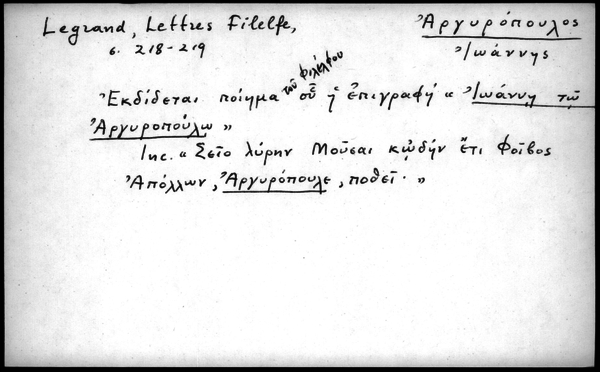 Legrand, Lettres Filelfe,
σ. 218-219
Ἀργυρόπουλος
Ἰωάννης
Ἐκδίδεται ποίημα τοῦ Φιλέλφου οὗ ἡ ἐπιγραφή « Ἰωάννῃ τῷ
Ἀργυροπούλῳ »
Inc. « Σεῖο λύρην Μοῦσαι κᾠδὴν ἔτι Φοῖβος
Ἀπόλλων, Ἀργυρόπουλε, ποθεῖ · »